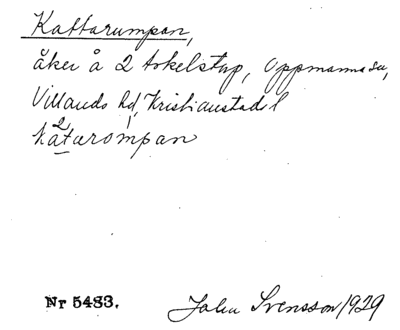 Kattarumpan,
åker å 2 Arkelstorp, Oppmanna sn,
Villands hd, Kristianstads l
2
katarompan
Nr 5483. John Svensson 1929